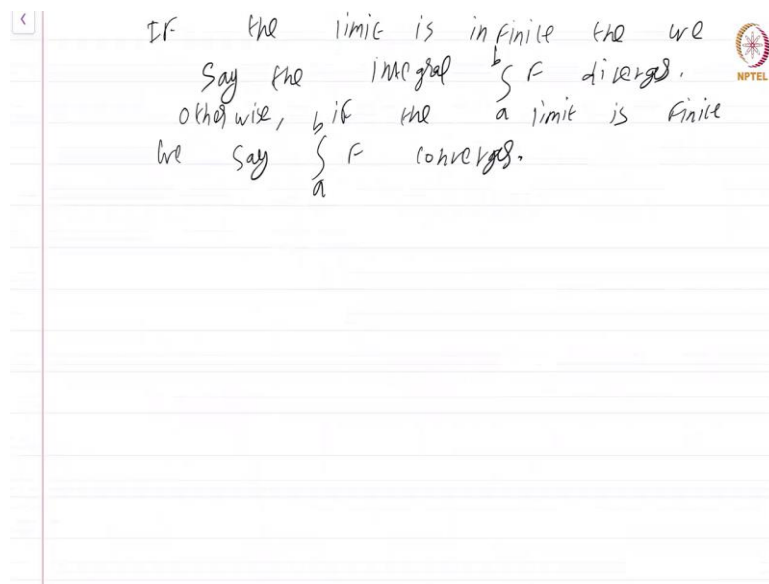 If the limit is infinite the we
say the integral ∫_a^b F diverges.
otherwise, if the limit is finite
we say ∫_a^b F converges.
NPTEL